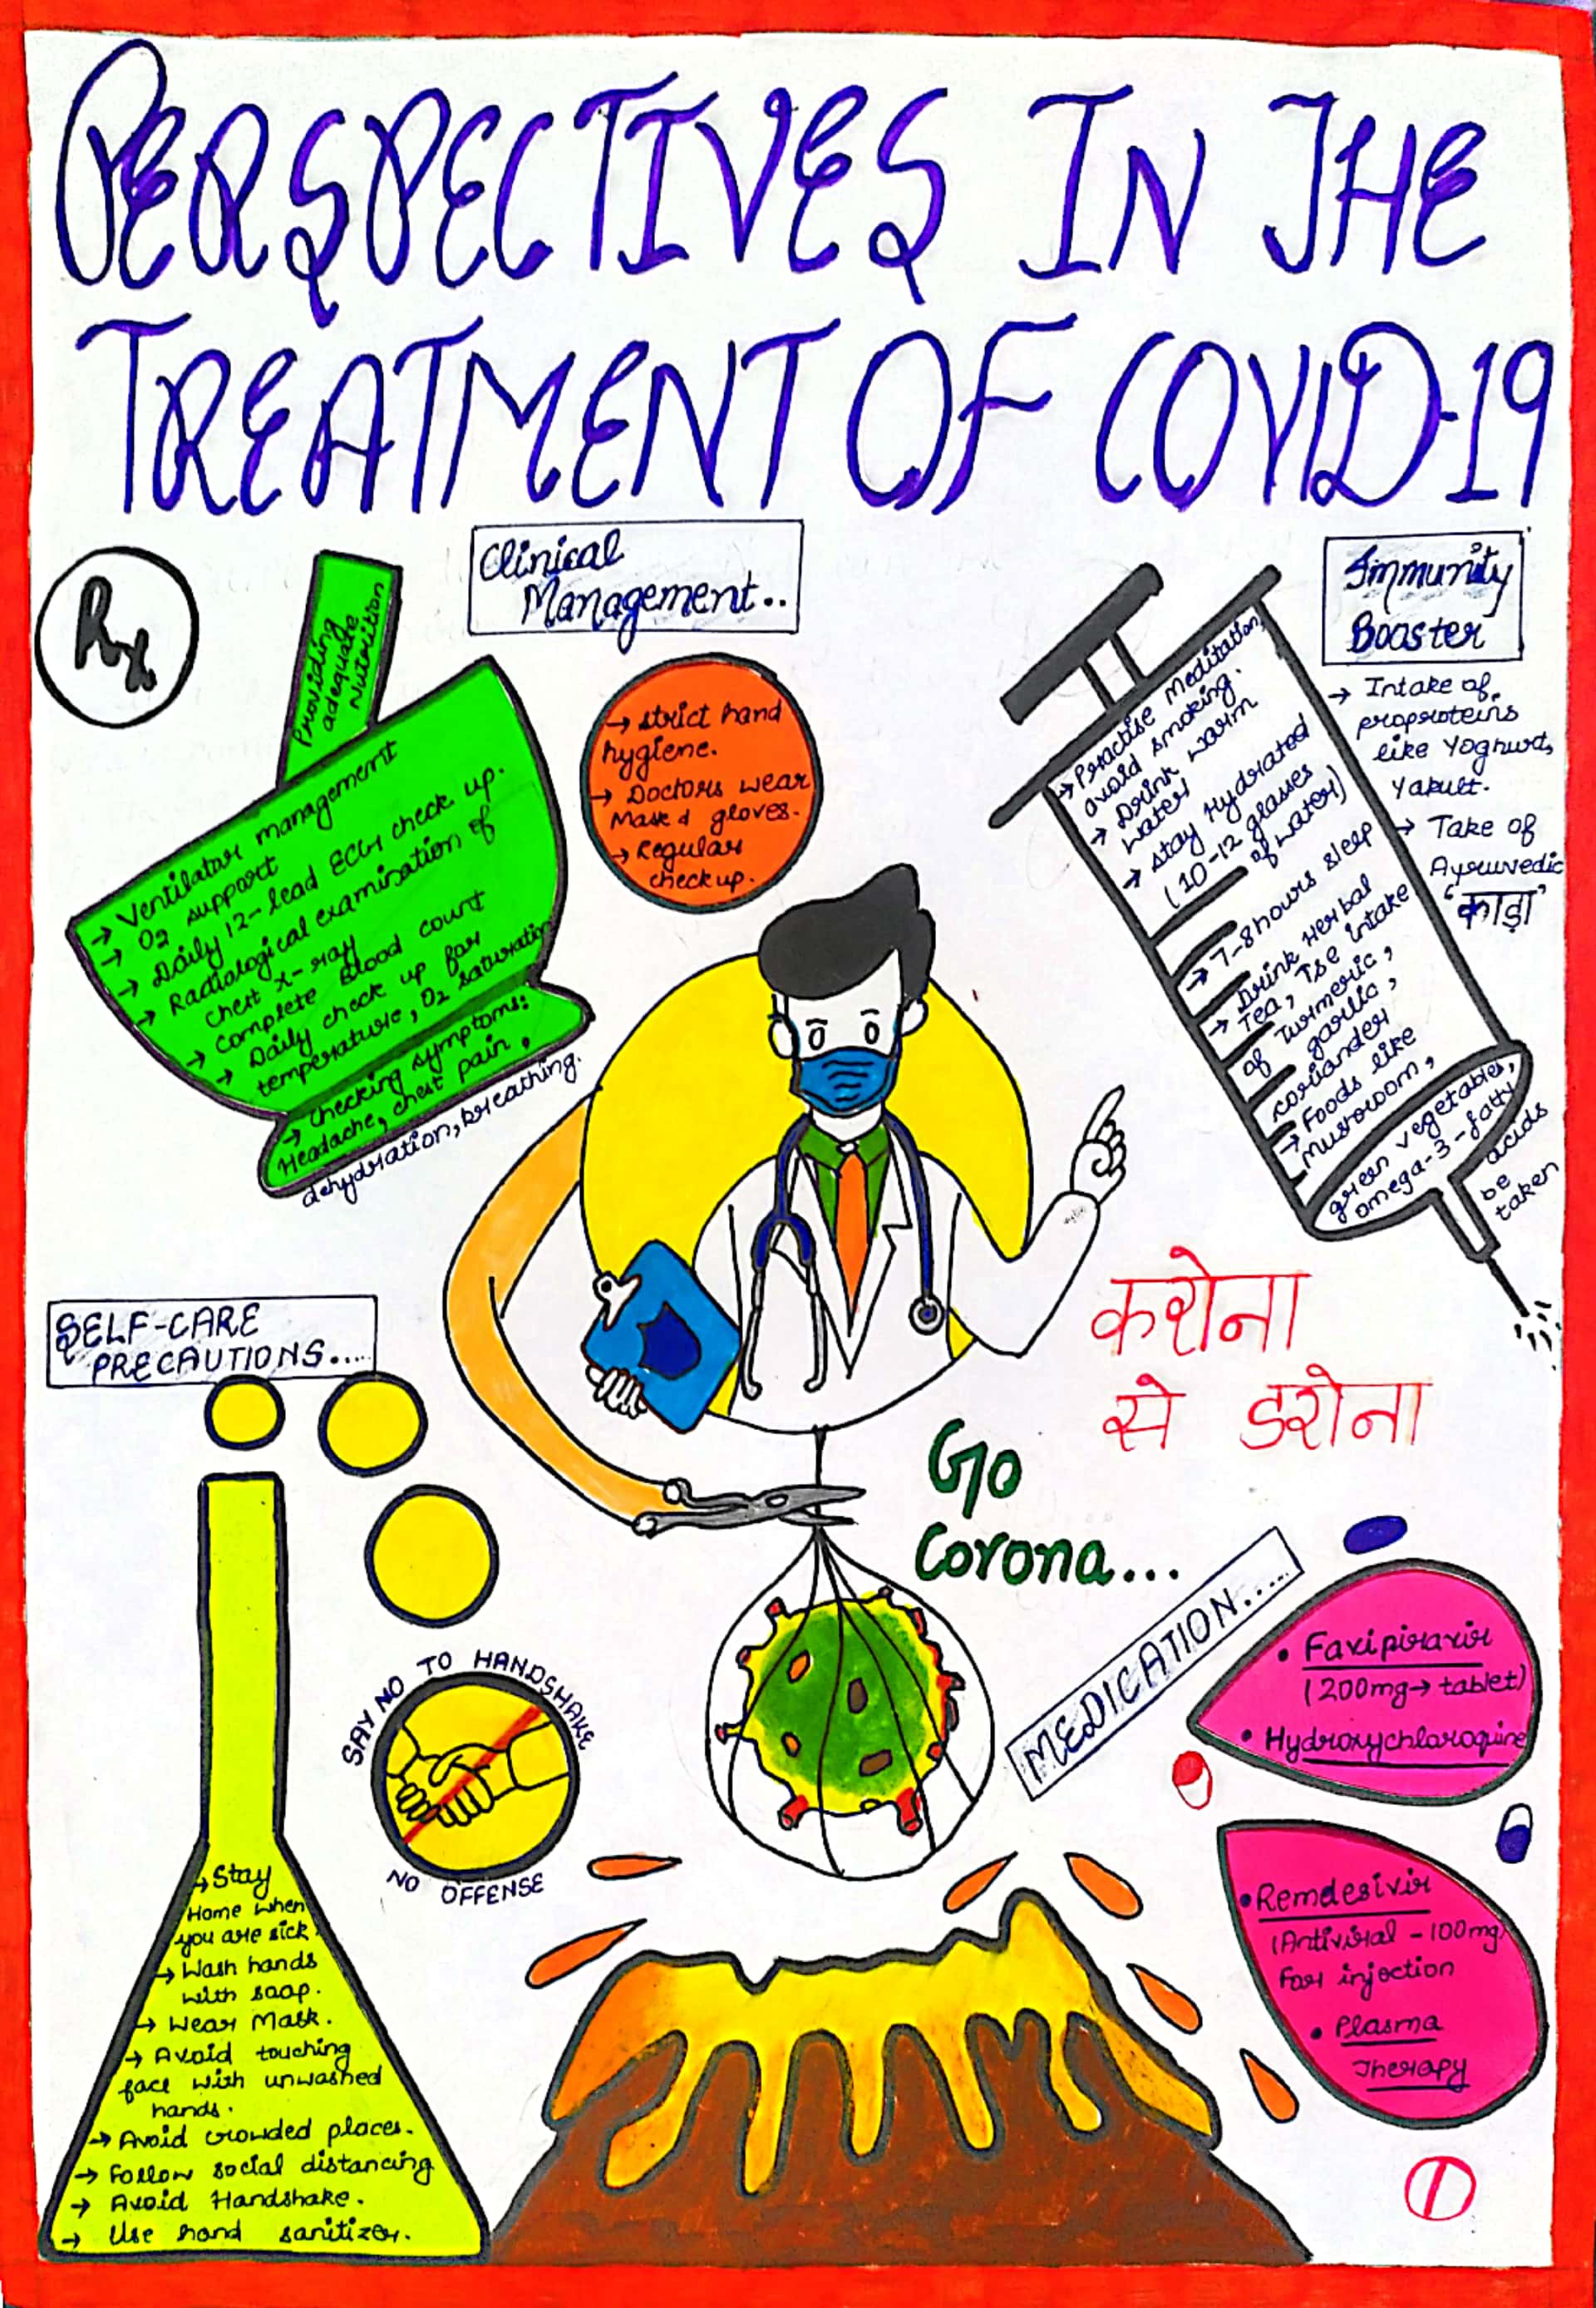 PERSPECTIVES IN THE
TREATMENT OF COVID-19
Rx
Clinical
Management..
Providing
adequate
Nutrition
→ Ventilator management
→ O2 support
→ Daily 12-lead ECG check up.
→ Radiological examination of
chest x-ray
→ Complete Blood count
→ Daily check up for
temperature, O2 saturation
→ Checking symptoms:
Headache, chest pain,
dehydration, breathing.
→ strict hand
hygiene.
→ Doctors wear
Mask & gloves.
→ Regular
checkup.
Immunity
Booster
→ Practise Meditation,
avoid smoking.
→ Drink warm
water
→ stay Hydrated
(10-12 glasses
of water)
→ 7-8 hours sleep
→ Drink Herbal
Tea, Tse intake
of Turmeric,
garlic,
coriander
→ Foods like
Mushroom,
green vegetables,
omega-3-fatty
acids
be
taken
→ Intake of
proproteins
like Yoghurt,
Yakult.
→ Take of
Ayurvedic
“काड़ा”
करोना
से डरोना
Go
Corona...
SELF-CARE
PRECAUTIONS....
SAY NO TO HANDSHAKE
NO OFFENSE
→ Stay
Home when
you are sick.
→ Wash hands
with soap.
→ Wear Mask.
→ Avoid touching
face with unwashed
hands.
→ Avoid crowded places.
→ Follow social distancing
→ Avoid Handshake.
→ Use hand sanitizer.
MEDICATION.....
• Favipiravir
(200mg→ tablet)
• Hydroxychloroquine
• Remdesivir
(Antiviral - 100mg)
For injection
• Plasma
Therapy
1